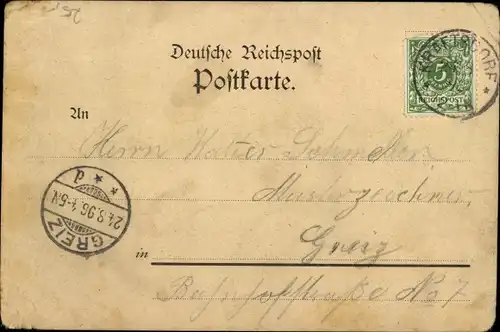 Deutsche Reichspost
Postkarte.
5
REICHSPOST
An
Herrn Walter
Musterzeichner,
GREIZ
24.8.96. 4-5N.
d
in Greiz
Bahnhofstraße No 7